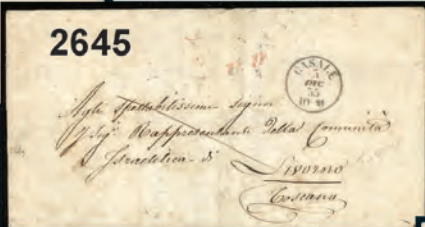 2645
CASALE
DIC
55
Agli Spettabilissimi Signori
Rappresentanti della Comunità
Israelitica di
Livorno
Toscana